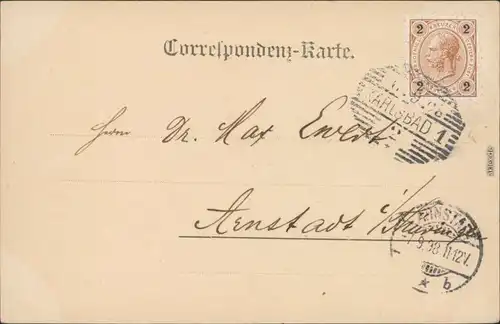 2 2
2 2
Correspondenz-Karte.
KARLSBAD 1
Herrn Dr. Max Ewert
Arnstadt i/Thüring
ARNSTADT
9.98 11-12V.
* b